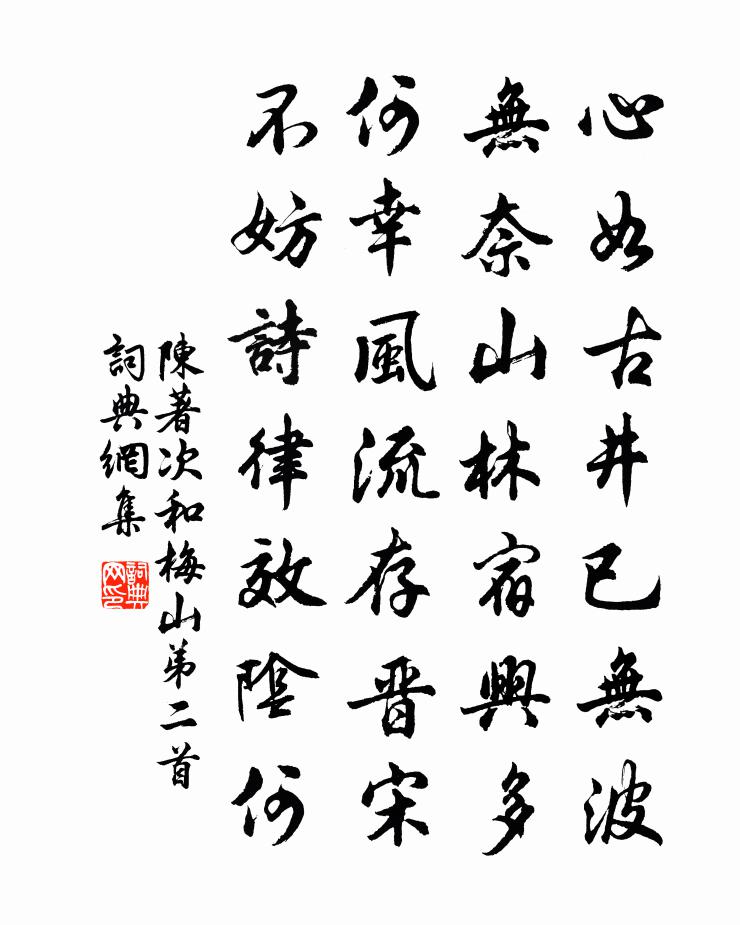 心如古井已無波
無奈山林宿興多
何幸風流存晋宋
不妨詩律效陰何
陳著次和梅山弟二首
詞典網集
詞典网印